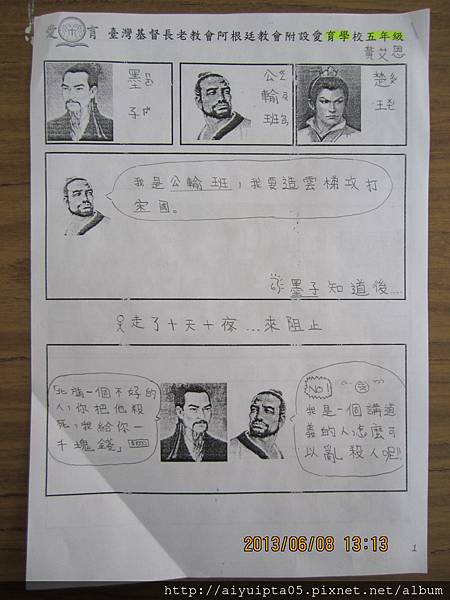 愛育 臺灣基督長老教會阿根廷教會附設愛育學校五年級
黃艾恩
墨子
ㄗˇ
公輸班
ㄕㄨ
ㄅㄢ
楚王
ㄔㄨˇ
ㄨㄤˊ
我是公輸班，我要造雲梯攻打
宋國。
墨子知道後...
走了十天十夜...來阻止
「北方有一個不好的
人，你把他殺
死，我給你一
千塊錢」
NO!
我是一個講道
義的人，怎麼可
以亂殺人呢!!
2013/06/08 13:13
1
http://aiyuipta05.pixnet.net/album